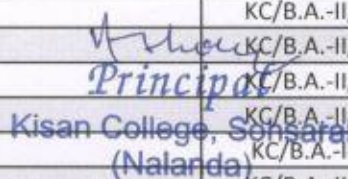 KC/B.A.-II
KC/B.A.-II
Principal KC/B.A.-II
KC/B.A.-II
Kisan College, Sohsarai
KC/B.A.-I
(Nalanda)
KC/B.A.-II